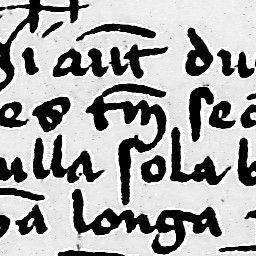 Si aut̄ du
es tm̄ sec
ulla sola b
ā longa